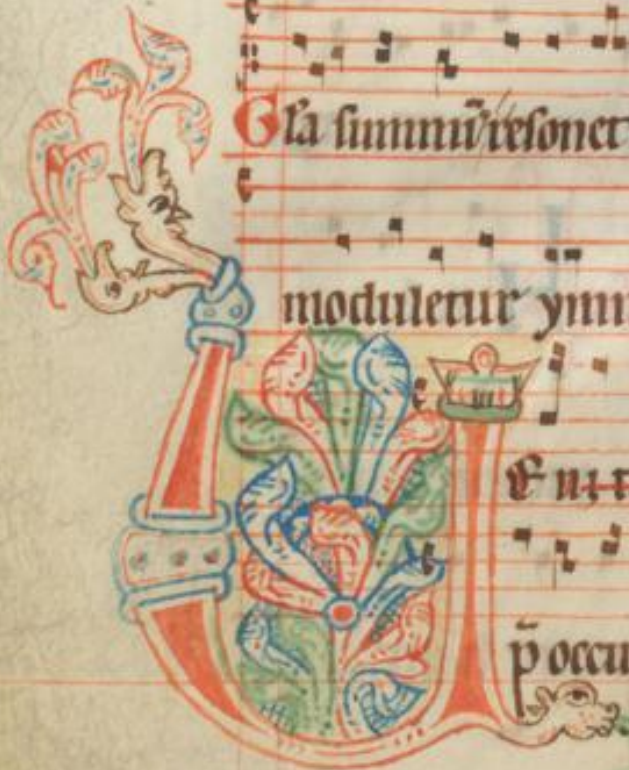 Gl̄a summū resonet
moduletur ymn
Enix
p̄ occu